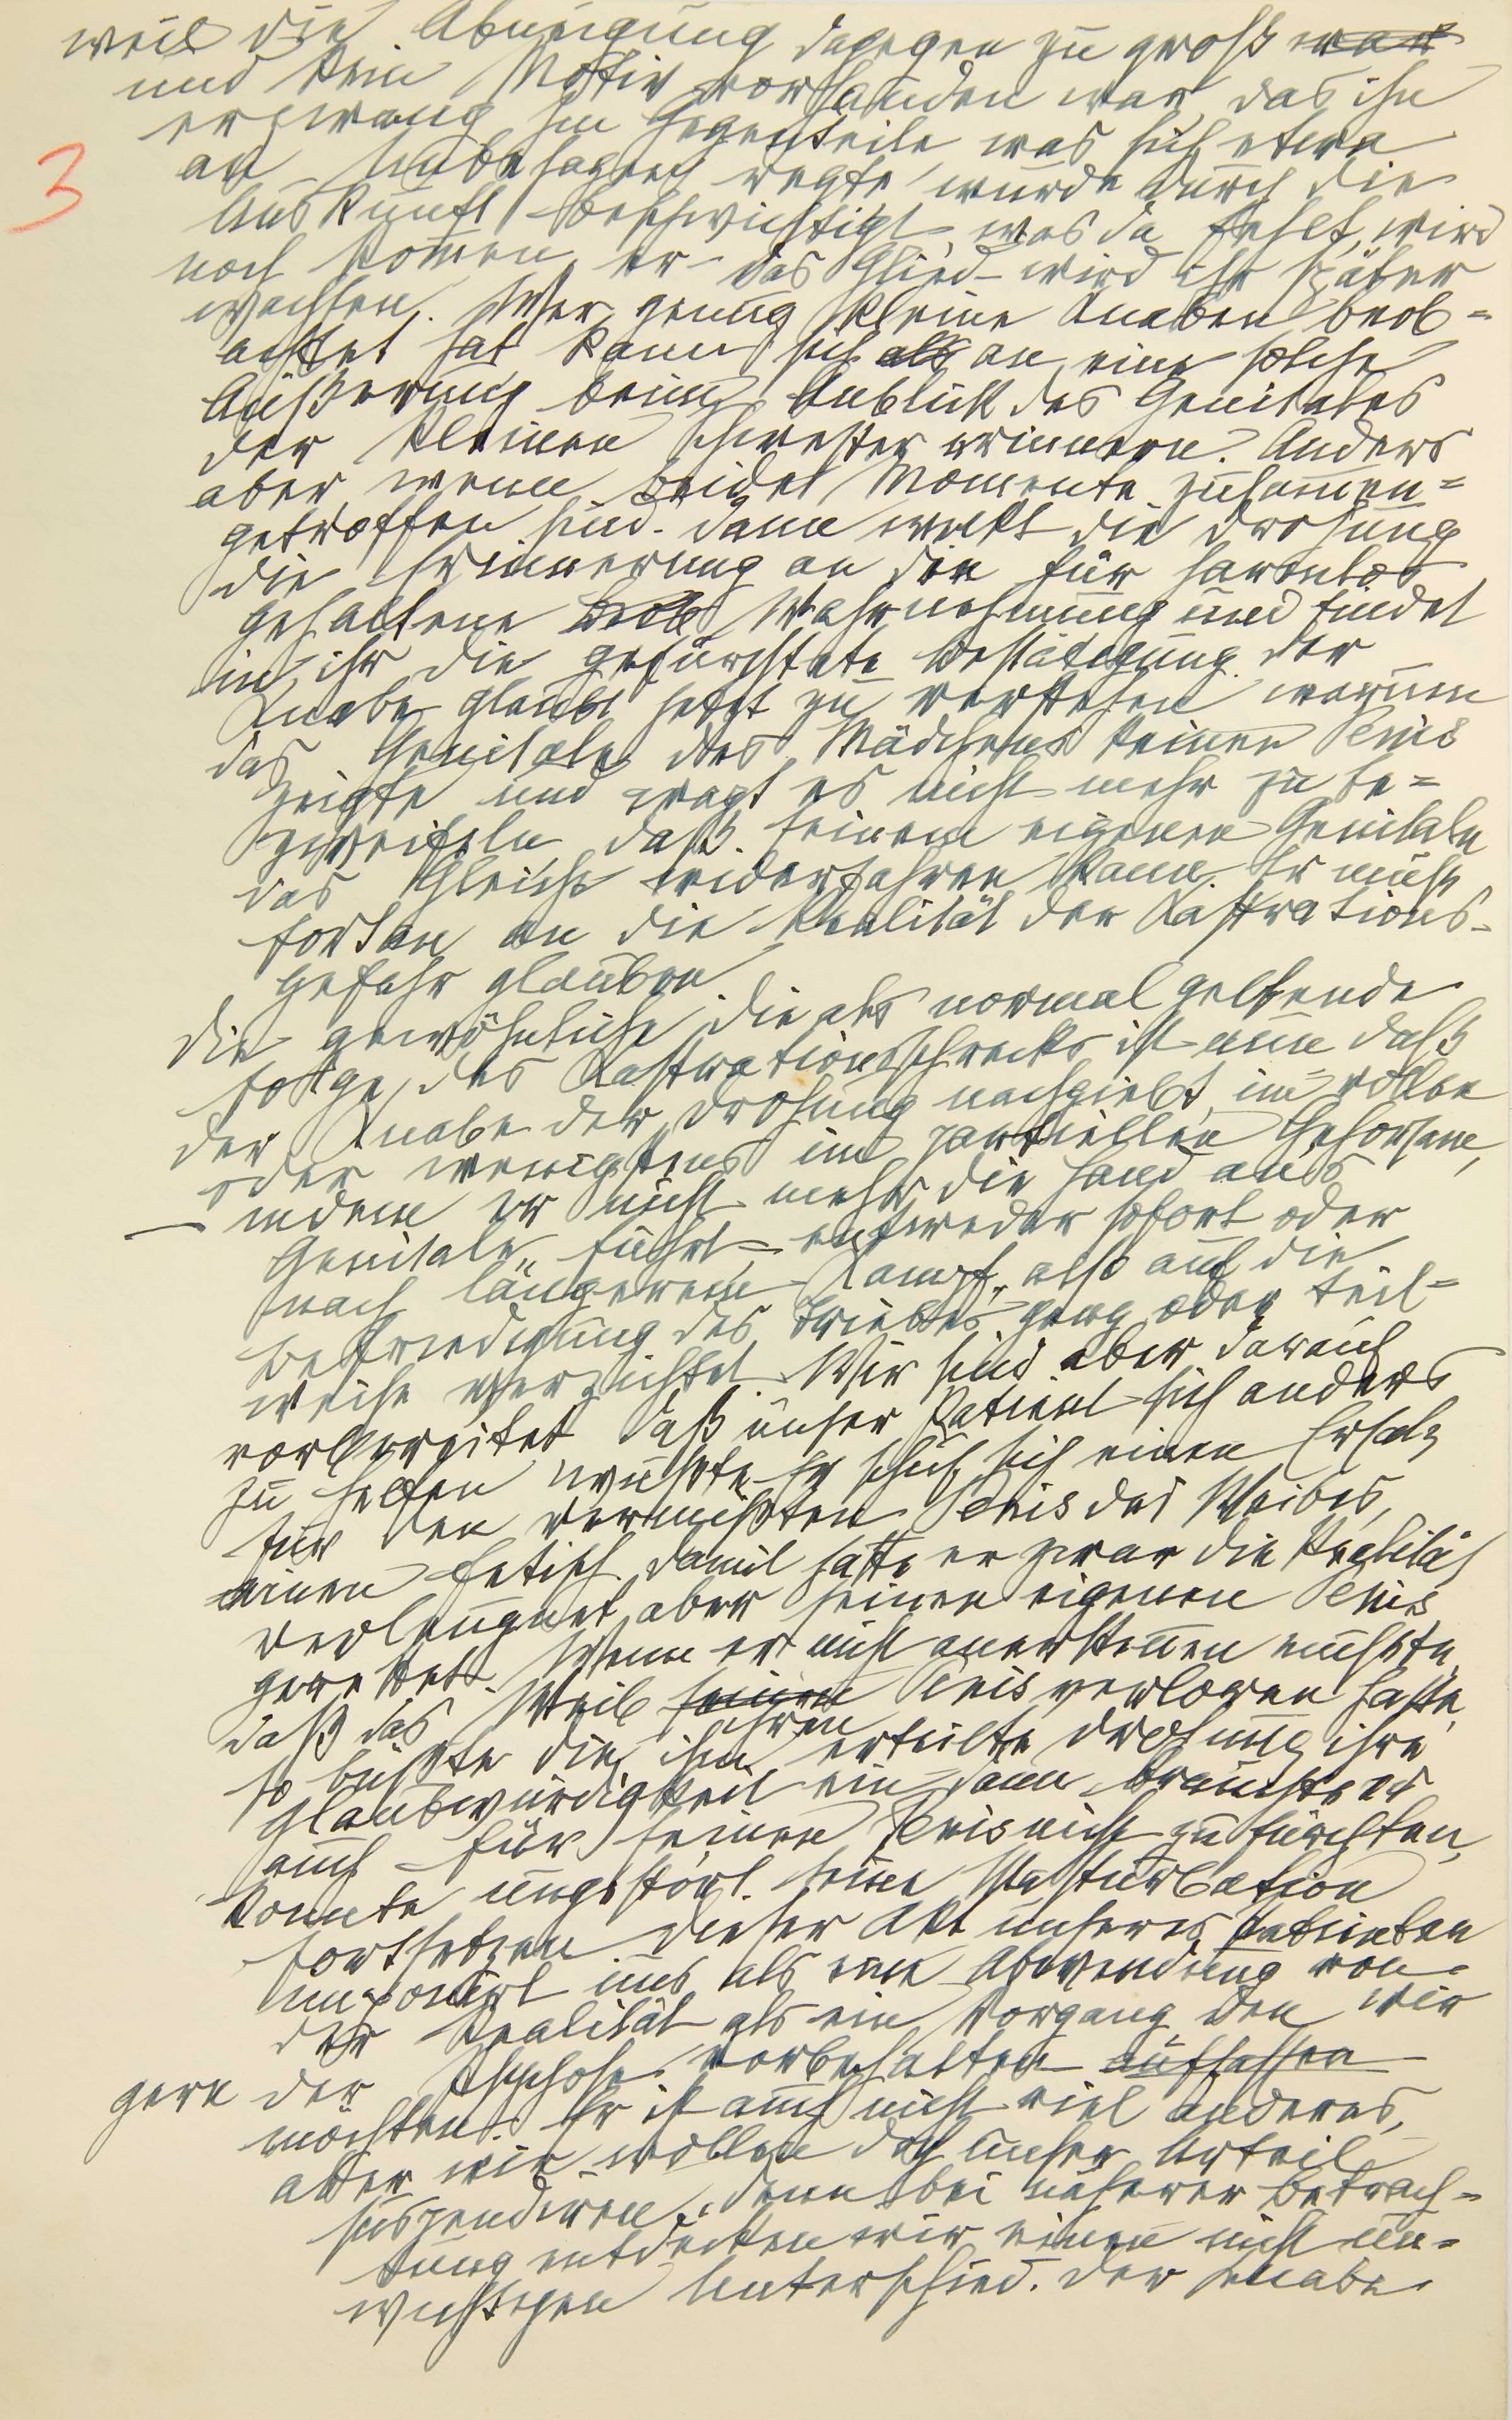 weil die Abneigung dagegen zu groß war
und kein Motiv vorhanden war, das ihn
3
erzwang. Im Gegenteile, was sich etwa
an Unbehagen regte, wurde durch die
Auskunft beschwichtigt, was da fehlt, wird
noch kommen, er - das Glied - wird ihr später
wachsen. Wer genug kleine Knaben beob=
achtet hat, kann sich als an eine solche
Äußerung beim Anblick des Genitales
der kleinen Schwester erinnern. Anders
aber, wenn beide Momente zusammen=
getroffen sind. Dann weckt die Drohung
die Erinnerung an die für harmlos
gehaltene Wahrnehmung und findet
in ihr die gefürchtete Bestätigung. Der
Knabe glaubt jetzt zu verstehen, warum
das Genitale des Mädchens keinen Penis
zeigte und wagt es nicht mehr zu be=
zweifeln, daß seinem eigenen Genitale
das Gleiche widerfahren kann. Er muß
fortan an die Realität der Kastrations-
gefahr glauben.
Die gewöhnliche, die als normal geltende
Folge des Kastrationsschrecks ist nun, daß
der Knabe der Drohung nachgiebt, im vollen
oder wenigstens im partiellen Gehorsam,
- indem er nicht mehr die Hand ans
Genitale führt - entweder sofort oder
nach längerem Kampf, also auf die
Befriedigung des Triebes ganz oder teil=
weise verzichtet. Wir sind aber darauf
vorbereitet, daß unser Patient sich anders
zu helfen wußte. Er schuf sich einen Ersatz
für den vermißten Penis des Weibes,
einen Fetisch. Damit hatte er zwar die Realität
verleugnet, aber seinen eigenen Penis
gerettet. Wenn er nicht anerkennen mußte,
daß das Weib seinen Penis verloren hatte,
ihren
so büßte die ihm erteilte Drohung ihre
Glaubwürdigkeit ein, dann brauchte er
auch für seinen Penis nicht zu fürchten,
konnte ungestört seine Masturbation
fortsetzen. Dieser Akt unseres Patienten
imponirt uns als eine Abwendung von
der Realität, als ein Vorgang, den wir
gern der Psychose vorbehalten auffassen
möchten. Er ist auch nicht viel anderes,
aber wir wollen doch unser Urteil
suspendiren, denn bei näherer Betrach=
tung entdecken wir einen nicht un=
wichtigen Unterschied. Der Knabe